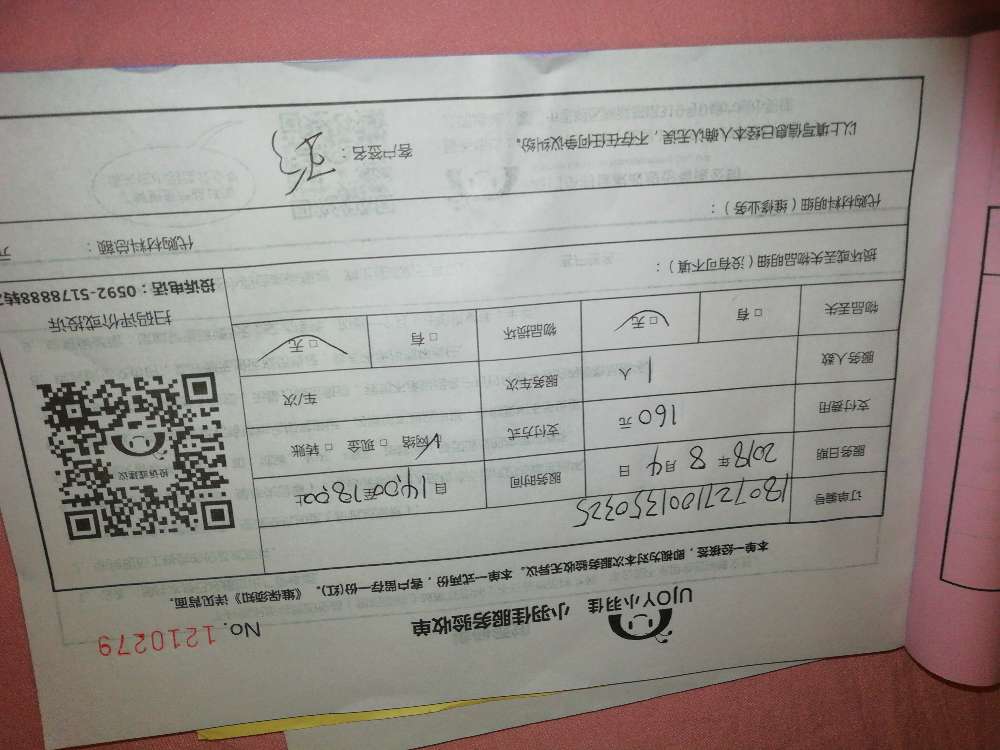 UJOY小羽佳 小羽佳服务验收单 No. 1210279
本单一经核签，即视为对本次服务验收无异议。本单一式两份，客户留存一份(红)。《维保须知》详见背面。
订单编号 1807271001350325
服务日期 2018年8月4日 服务时间 日14,00至18,00止
支付费用 160元 支付方式 ☑网络 □现金 □转账
服务人数 1人 服务车次 车/次
物品丢失 □有 □无 物品损坏 □有 □无
投诉或建议
扫码评价或投诉
投诉电话：0592-5178888转
损坏或丢失物品明细（没有可不填）：
代购材料明细（维修业务）： 代购材料总额： 元
以上填写信息已经本人确认无误，不存在任何争议纠纷。 客户签名：